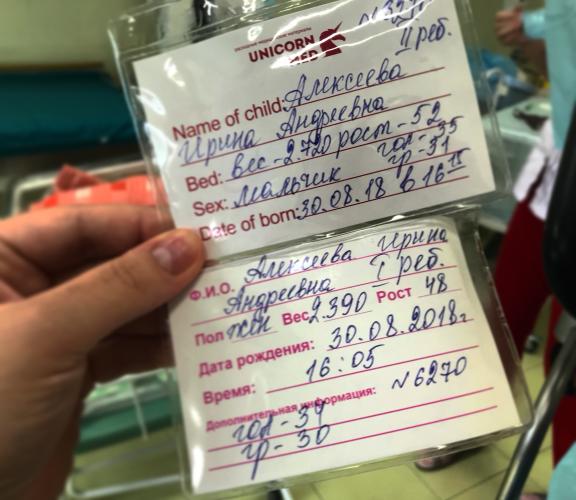 UNICORN
MED
II реб.
Name of child: Алексеева
Ирина Андреевна
Bed: вес-2.720 рост-52
гол-35
Sex: мальчик гр-31
Date of born: 30.08.18 в 16 15
Ф.И.О. Алексеева Ирина
Андреевна I реб.
Пол жен Вес 2.390 Рост 48
Дата рождения: 30.08.2018г
Время: 16:05
Дополнительная информация: №6270
гол-34
гр-30